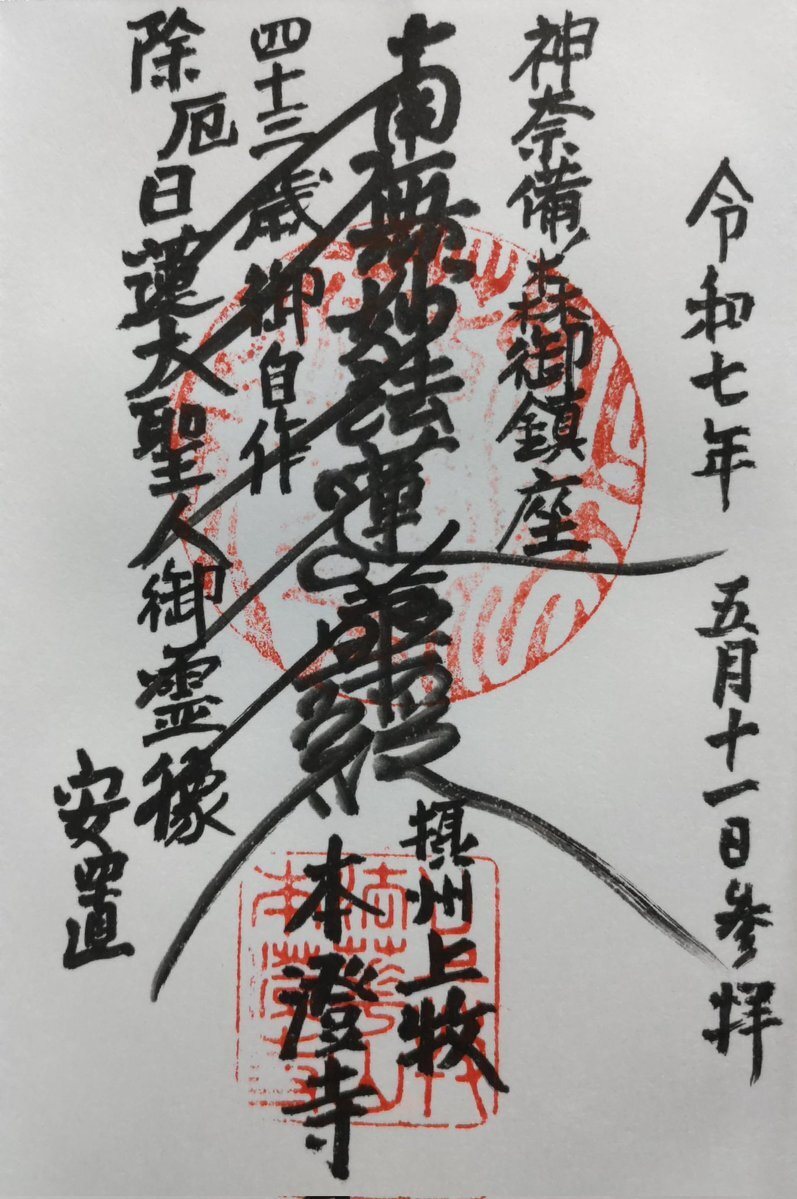 令和七年 五月十一日参拝
神奈備ノ森御鎮座
南無妙法蓮華経
摂州上牧
本澄寺
四十三歳御自作
除厄日蓮大聖人御霊像
安置